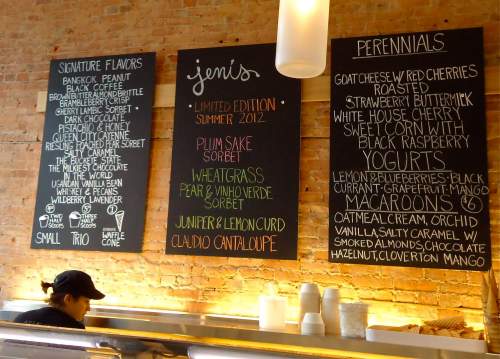 SIGNATURE FLAVORS
BANGKOK PEANUT
BLACK COFFEE
BROWN BUTTER ALMOND BRITTLE
BRAMBLEBERRY CRISP
SHERRY LAMBIC SORBET
DARK CHOCOLATE
PISTACHIO & HONEY
QUEEN CITY CAYENNE
RIESLING POACHED PEAR SORBET
SALTY CARAMEL
THE BUCKEYE STATE
THE MILKIEST CHOCOLATE
IN THE WORLD
UGANDAN VANILLA BEAN
WHISKEY & PECANS
WILDBERRY LAVENDER
TWO HALF SCOOPS
THREE HALF SCOOPS
SMALL TRIO WAFFLE CONE
jeni's
LIMITED EDITION
SUMMER 2012
PLUM SAKE
SORBET
WHEATGRASS
PEAR & VINHO VERDE
SORBET
JUNIPER & LEMON CURD
CLAUDIO CANTALOUPE
PERENNIALS
GOAT CHEESE W/ RED CHERRIES
ROASTED
STRAWBERRY BUTTERMILK
WHITE HOUSE CHERRY
SWEET CORN WITH
BLACK RASPBERRY
YOGURTS
LEMON & BLUEBERRIES - BLACK
CURRANT - GRAPEFRUIT - MANGO
MACAROONS $6
OATMEAL CREAM, ORCHID
VANILLA, SALTY CARAMEL W/
SMOKED ALMONDS, CHOCOLATE
HAZELNUT, CLOVERTON MANGO